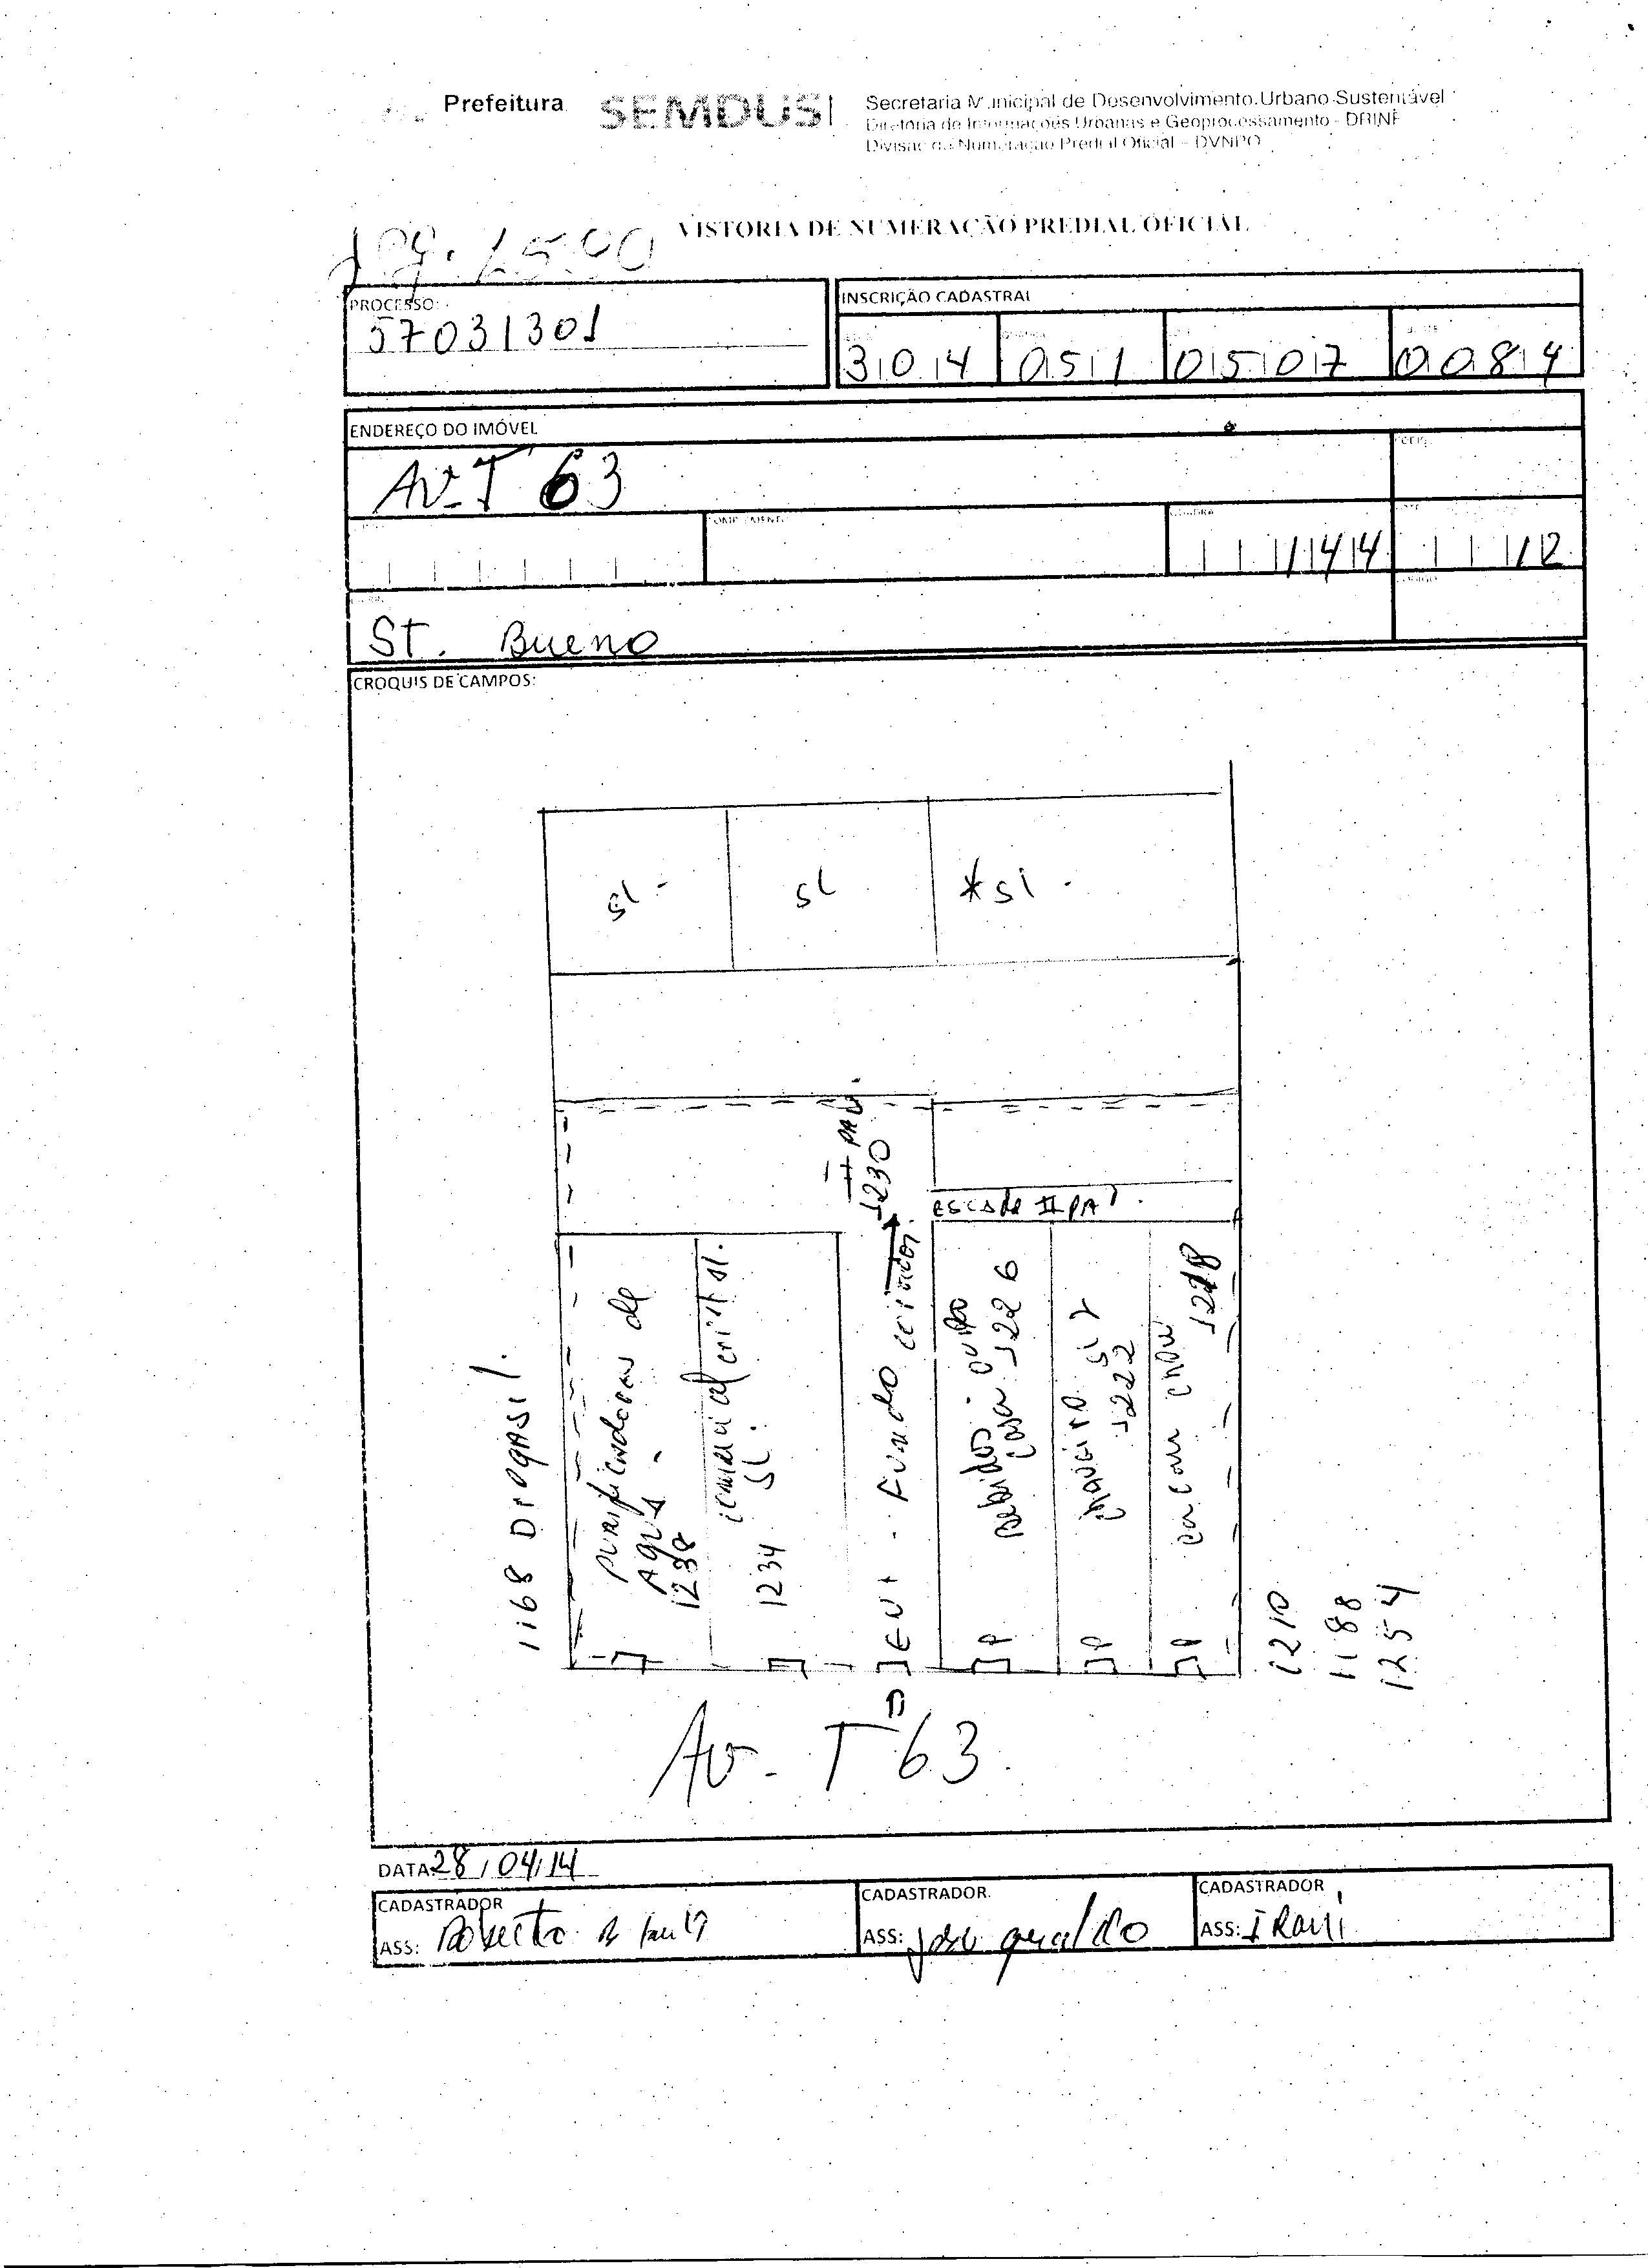 Prefeitura SEMDUS
Secretaria Municipal de Desenvolvimento Urbano Sustentável
Diretoria de Informações Urbanas e Geoprocessamento - DRINF
Divisão de Numeração Predial Oficial - DVNPO
VISTORIA DE NUMERAÇÃO PREDIAL OFICIAL
PROCESSO:
57031301
INSCRIÇÃO CADASTRAL
304 051 0507 0084
ENDEREÇO DO IMÓVEL
Av. T 63
QUADRA
144 12
St. Bueno
CROQUIS DE CAMPOS:
sl - sl * sl -
II PAV.
1230
ESCADA II PAV.
1168 Drogasil.
purificadores de
Agua
1238
sl.
sl.
1234
fundo
1226
chaveiro
1222
1218
1210
1188
1254
Av. T 63.
DATA 28/04/14
CADASTRADOR
ASS: Roberto
CADASTRADOR.
ASS: José geraldo
CADASTRADOR
ASS: IRANI